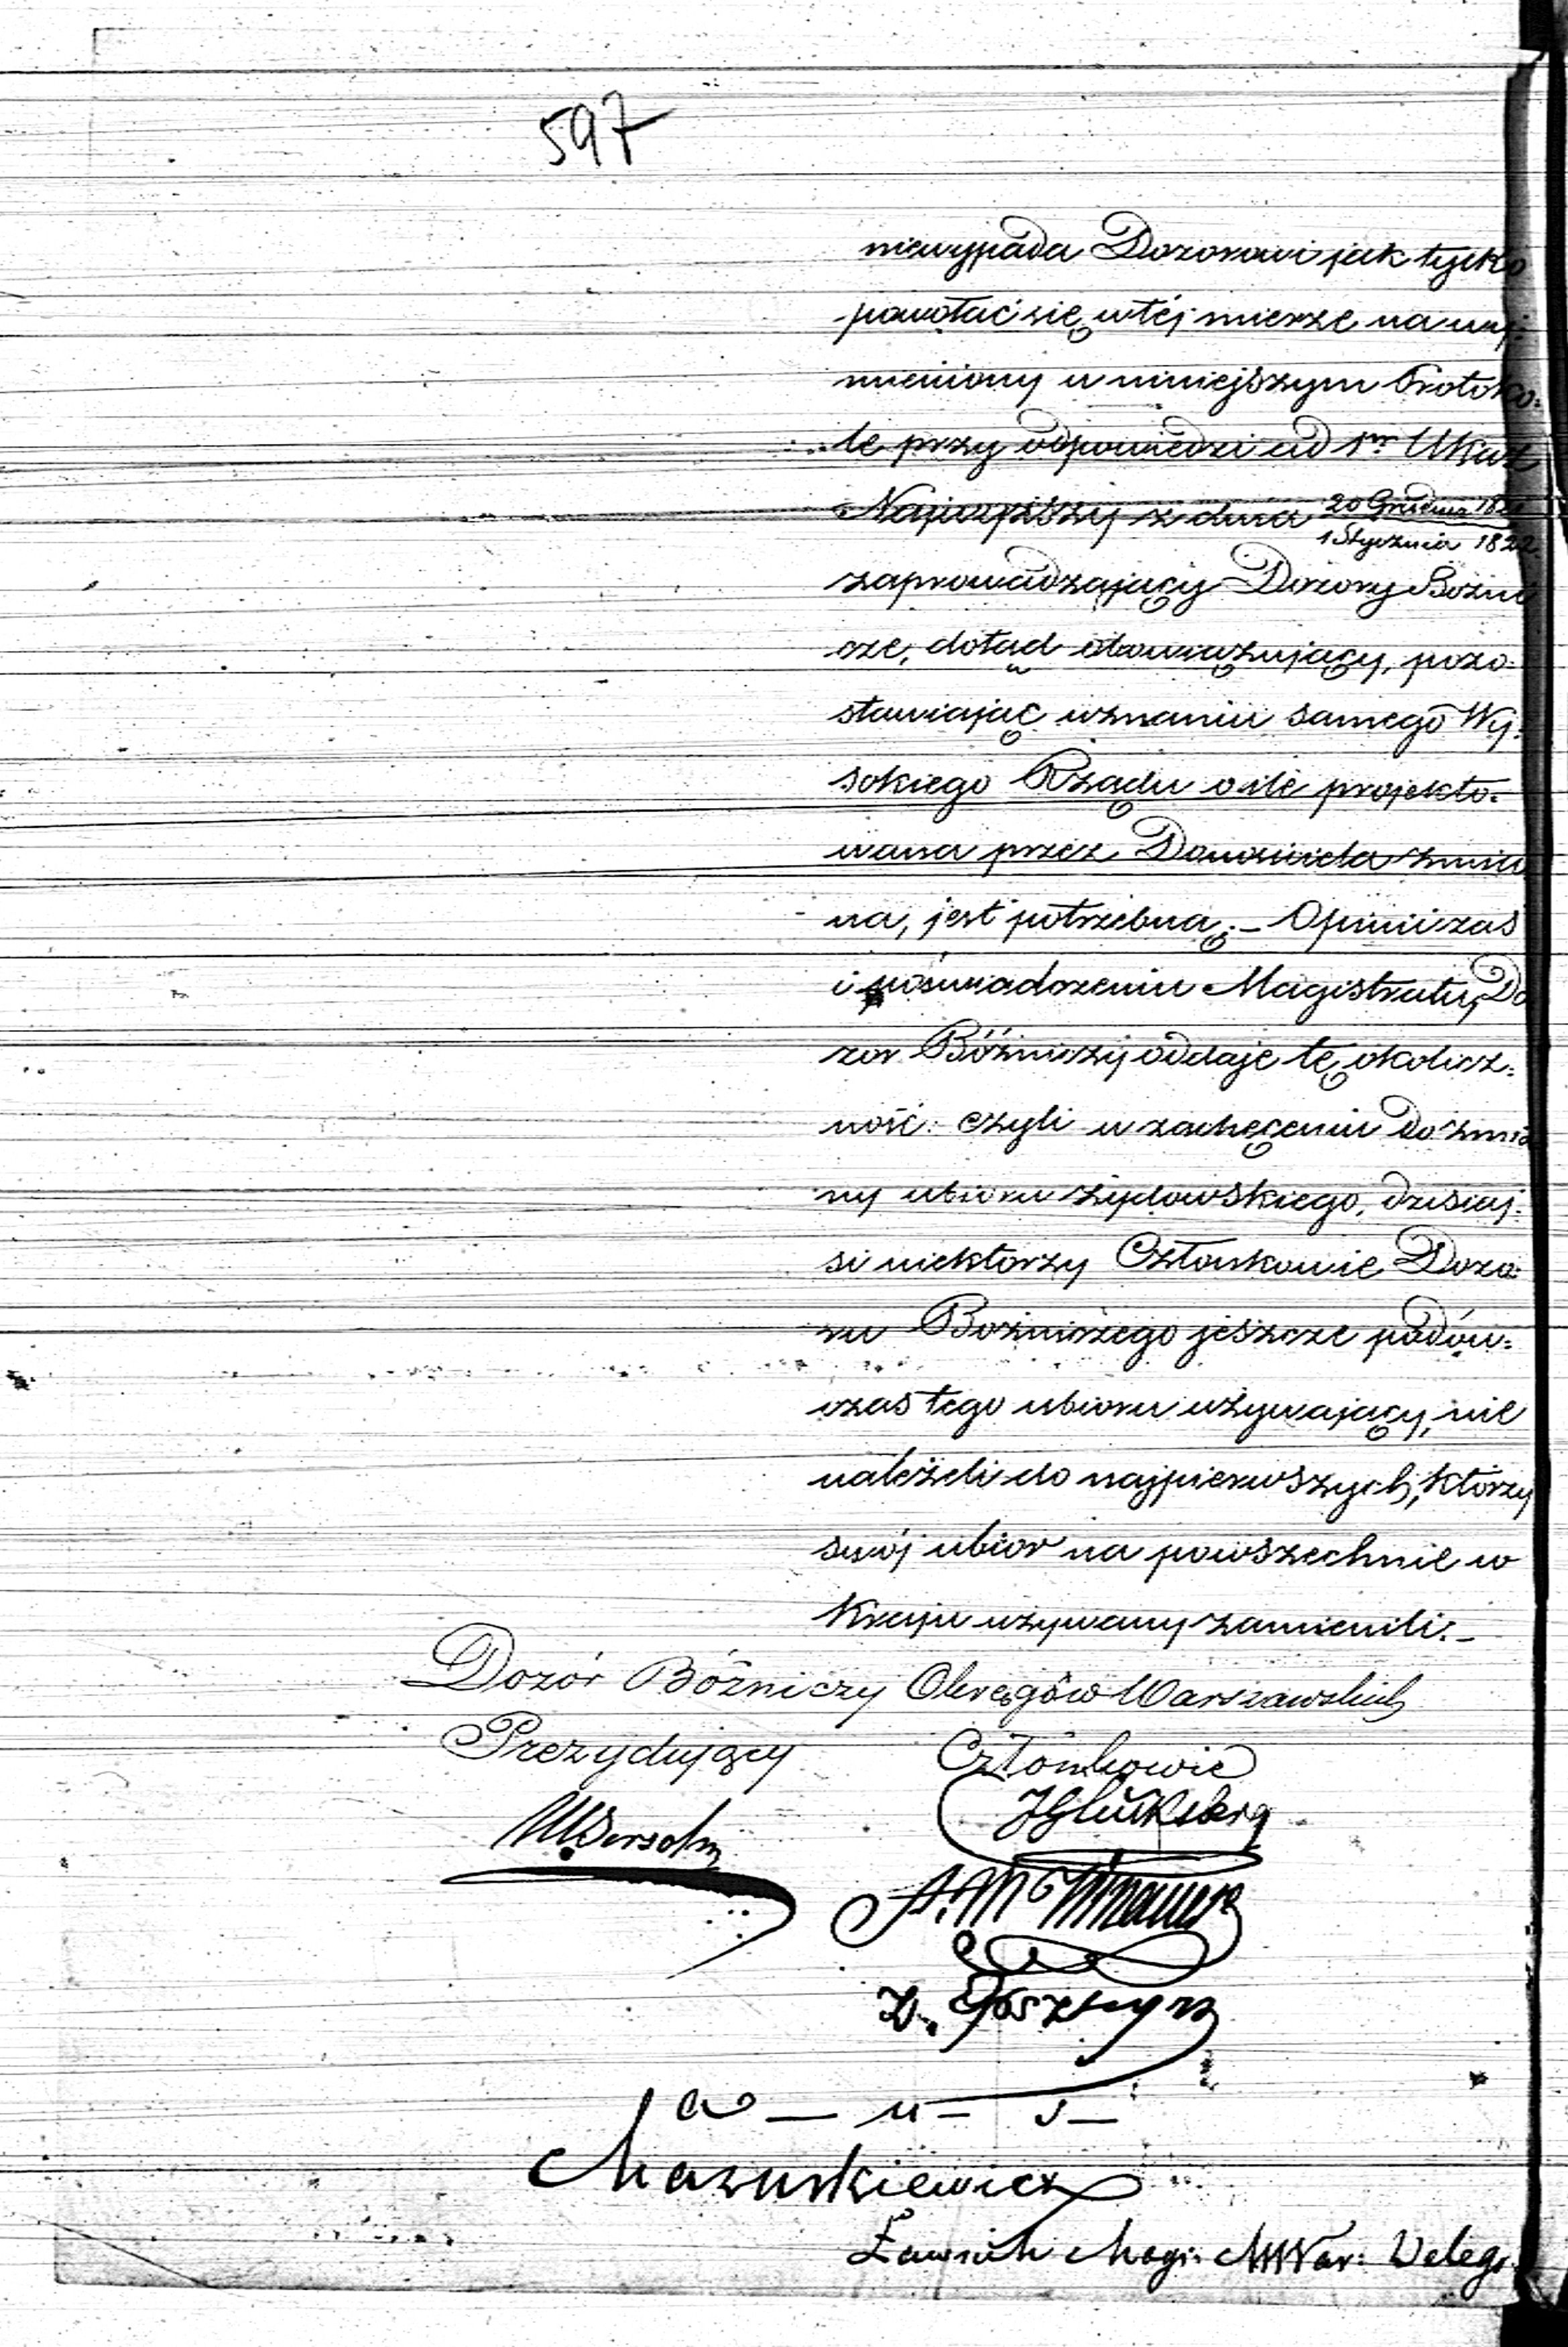 597
niewypada Dozorowi jak tylko
powołać się w téj mierze na wy:
mieniony w niniejszym Protoko:
le przy odpowiedzi ad 1m Ukaz
Najwyższy z dnia 20 Grudnia 1821
1 Stycznia 1822.
zaprowadzający Dozory Bożni
cze, dotąd obowiązujący, pozo:
stawiając uznaniu samego Wy:
sokiego Rządu o ile projekto:
wana przez Donosiciela zmia
na, jest potrzebną. – Opinii zaś
i poświadczeniu Magistratu, Do
zor Bóźniczy oddaje tę okolicz:
ność: czyli w zachęceniu do zmia
ny ubioru żydowskiego, dzisiaj:
si niektorzy Członkowie Dozo:
ru Bożniczego jeszcze podów:
czas tego ubioru używający, nie
należeli do najpierwszych, którzy
swój ubior na powszechnie w
Kraju używany zamienili. –
Dozór Bóźniczy Okręgów Warszawskich
Prezydujący Członkowie
JGlücksberg
Posztayn
a — u — s —
Mazurkiewicz
Ławnik Mag: M War: Deleg: